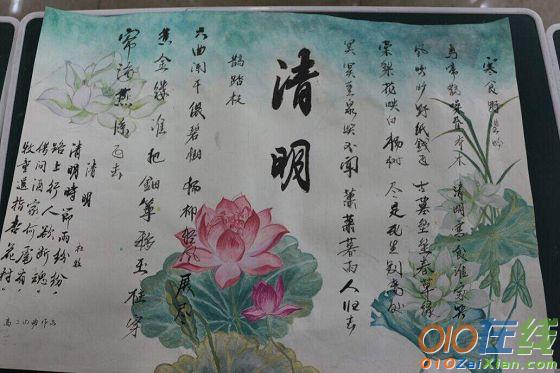 寒食野望吟
乌啼鹊噪昏乔木 清明寒食谁家哭
风吹旷野纸钱飞 古墓垒垒春草绿
棠梨花映白杨树 尽是死生别离处
冥冥重泉哭不闻 萧萧暮雨人归去
清明
鹊踏枝
六曲阑干偎碧树 杨柳轻风 展尽
黄金缕 谁把钿筝移玉柱 穿
帘海燕 飞去
清明 杜牧
清明时节雨纷纷，
路上行人欲断魂。
借问酒家何处有，
牧童遥指杏花村。
高二 作品
010在线
010ZaiXian.com